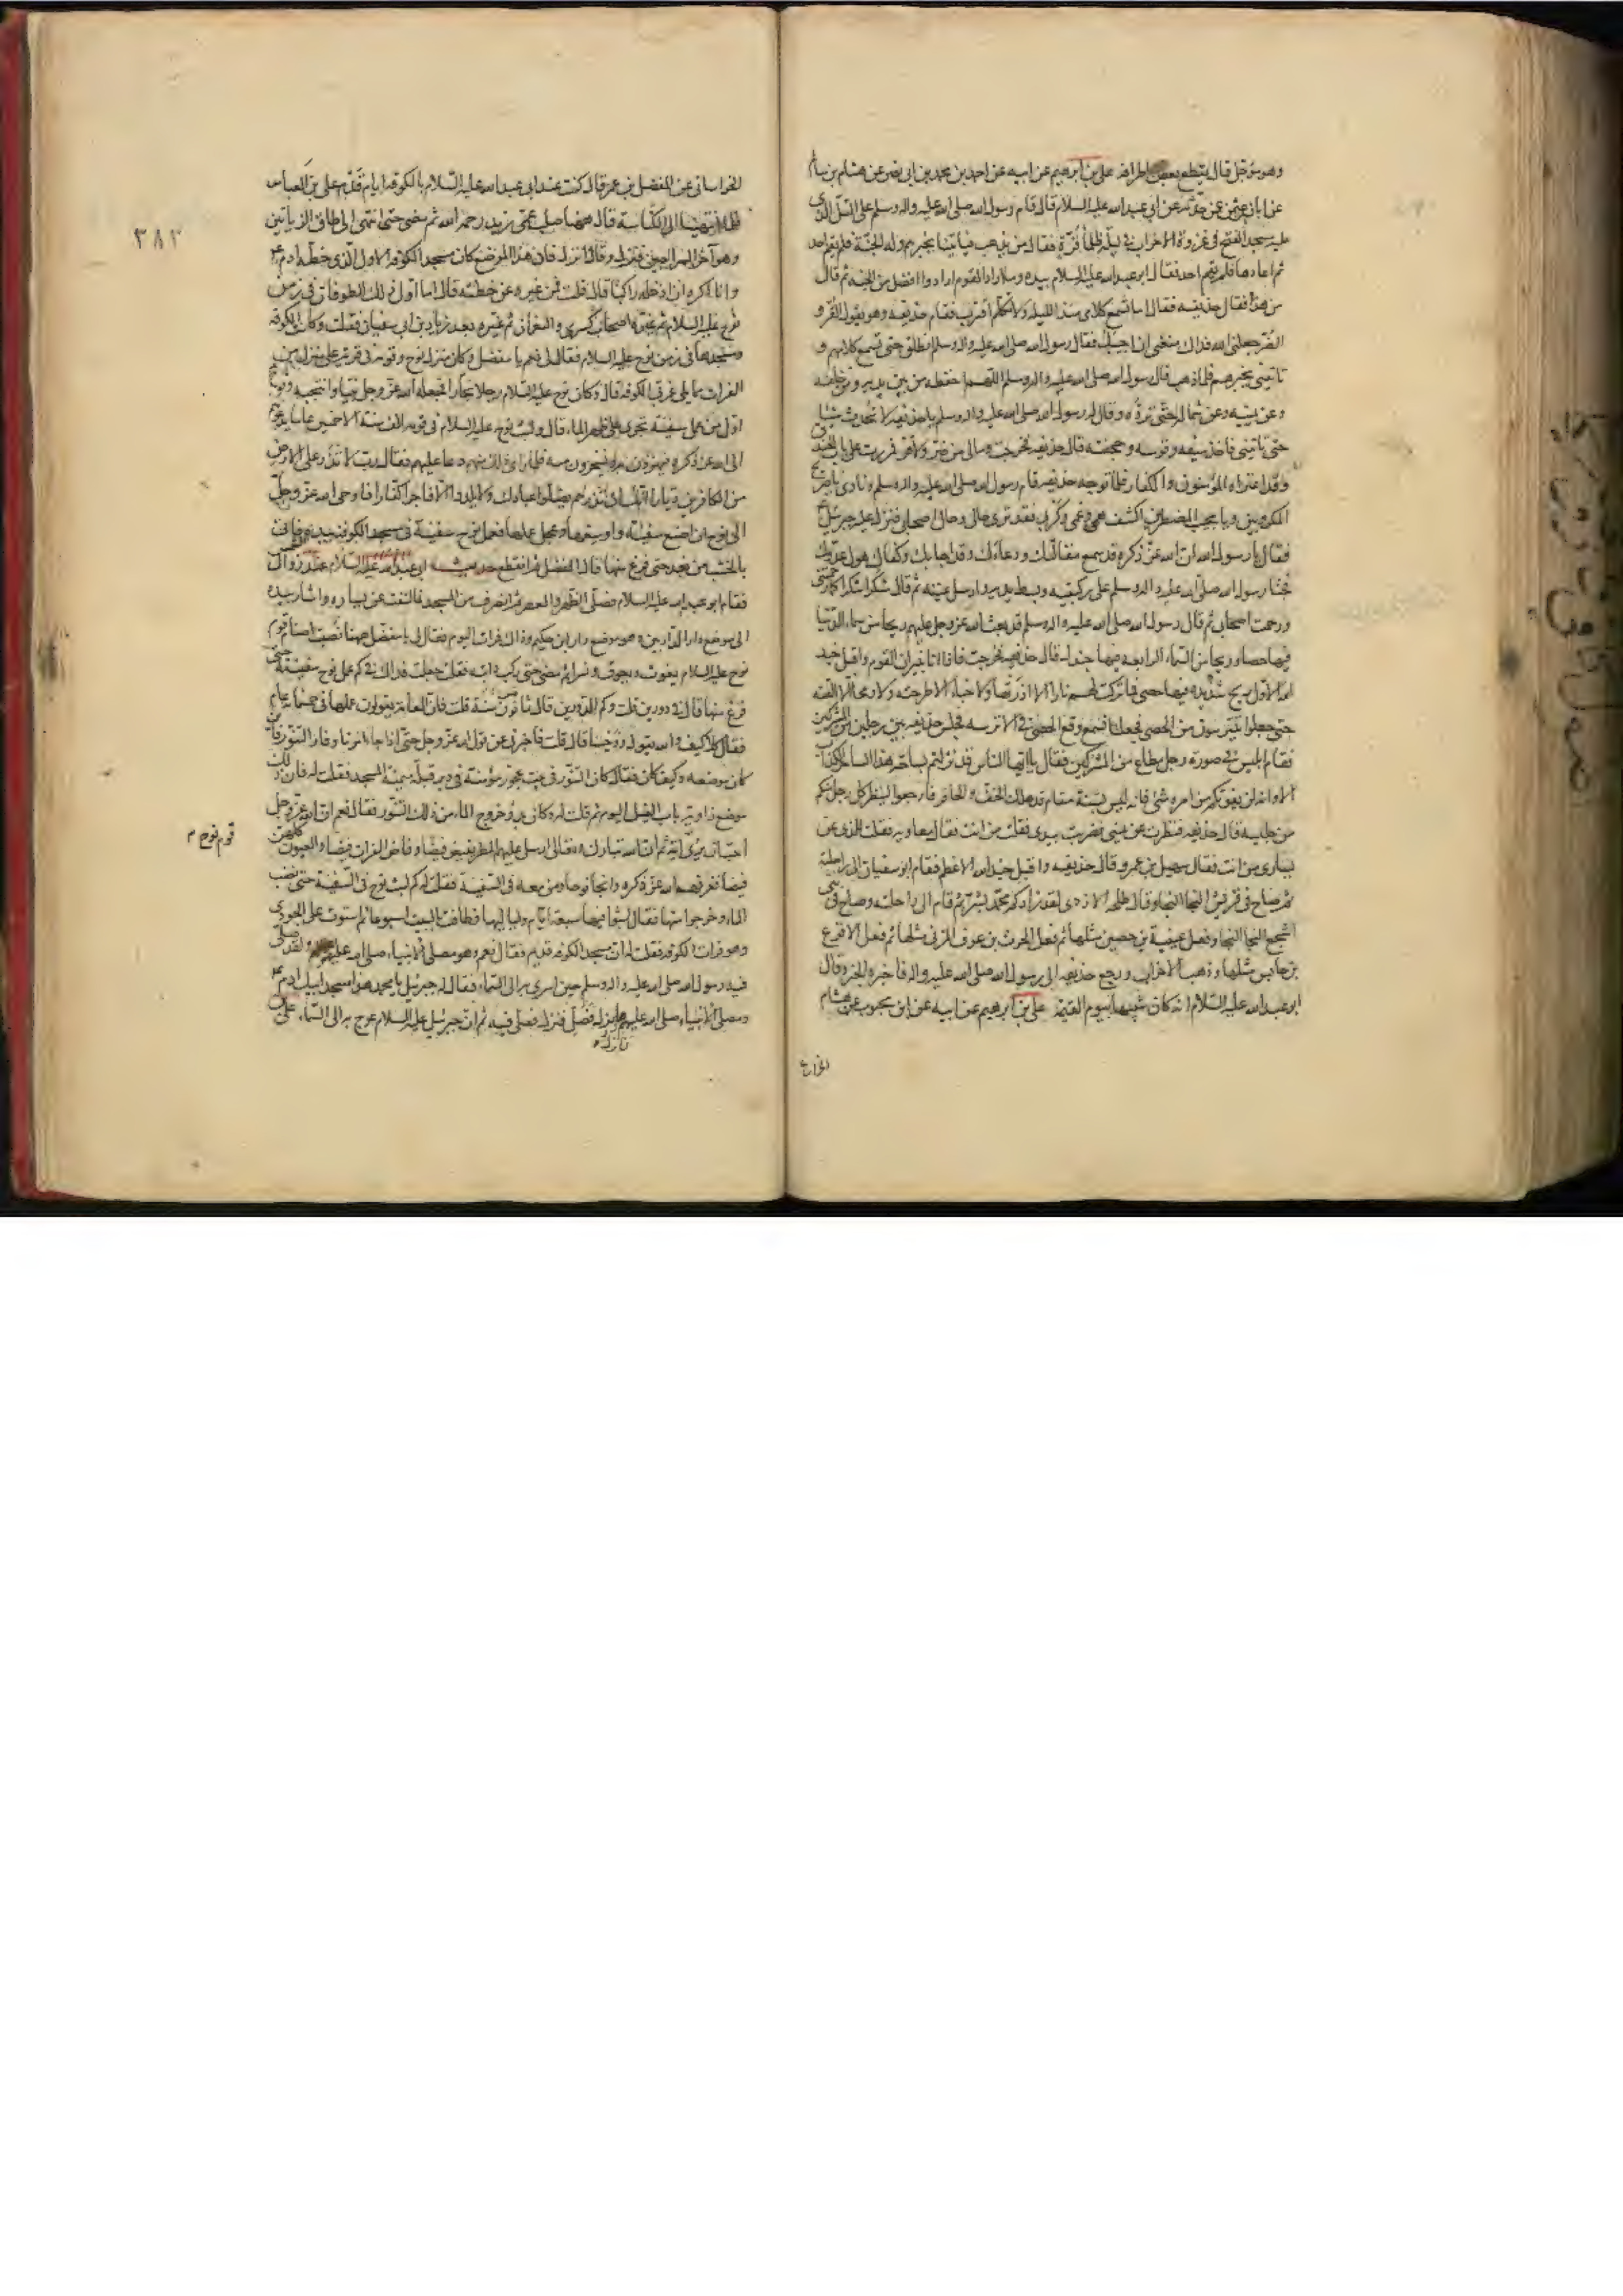 وهو مؤجل قال يقطع بعض اطرافه علي بن ابرهيم عن ابيه عن احمد بن محمد بن ابي نصر عن هشام بن سالم
عن ابان بن عثمن عمن حدثه عن ابي عبدالله عليه السلام قال قام رسول الله صلى الله عليه واله وسلم على التل الذي
عليه مسجد الفتح في غزوة الاحزاب في ليلة ظلماء قرة فقال من يذهب فياتينا بخبرهم وله الجنة فلم يقم احد
ثم اعادها فلم يقم احد فقال ابو عبدالله عليه السلام بيده وما اراد القوم ارادوا افضل من الجنة ثم قال
من هذا فقال حذيفه فقال اما تسمع كلامي منذ الليلة ولا تكلم اقترب فقام حذيفه وهو يقول القر و
الضر جعلني الله فداك منعني ان اجيبك فقال رسول الله صلى الله عليه واله وسلم انطلق حتى تسمع كلامهم و
تاتيني بخبرهم فلما ذهب قال رسول الله صلى الله عليه واله وسلم اللهم احفظه من بين يديه ومن خلفه
وعن يمينه وعن شماله حتى ترده وقال له رسول الله صلى الله عليه واله وسلم يا حذيفه لا تحدث شيئا
حتى تاتيني فاخذ سيفه وقوسه وحجفته قال حذيفه فخرجت وما لي من ضر ولا قر فمررت على باب الخندق
وقد اعتراه المؤمنون والكفار فلما توجه حذيفه قام رسول الله صلى الله عليه واله وسلم ونادى يا صريخ
المكروبين ويا مجيب المضطرين اكشف همي وغمي وكربي فقد ترى حالي وحال اصحابي فنزل عليه جبرئيل
فقال يا رسول الله ان الله عز ذكره قد سمع مقالتك ودعاءك وقد اجابك وكفاك هول عدوك
فجثا رسول الله صلى الله عليه واله وسلم على ركبتيه وبسط يديه وارسل عينيه ثم قال شكرا شكرا كما رحمتني
ورحمت اصحابي ثم قال رسول الله صلى الله عليه واله وسلم قد بعث الله عز وجل عليهم ريحا من سماء الدنيا
فيها حصا وريحا من السماء الرابعه فيها جندل قال حذيفه فخرجت فاذا انا بنيران القوم واقبل جند
الله الاول ريح شديده فيها حصى فما تركت لهم نارا الا اذرتها ولا خباء الا طرحته ولا رمحا الا القته
حتى جعلوا يتترسون من الحصى فجعلنا نسمع وقع الحصى في الاترسه فجلس حذيفه بين رجلين من المشركين
فقام ابليس في صورة رجل مطاع من المشركين فقال يا ايها الناس قد نزلتم بساحة هذا الساحر الكذاب
الا وانه لن يفوتكم من امره شئ فانه ليس بسنة مقام قد هلك الخف والحافر فارجعوا لينظر كل رجل منكم
من جليسه قال حذيفه فنظرت عن يميني فضربت بيدي فقلت من انت فقال معاويه فقلت للذي عن
يساري من انت فقال سهيل بن عمرو قال حذيفه واقبل جند الله الاعظم فقام ابو سفيان الى راحلته
ثم صاح في قريش النجا النجا وقال طلحه الازدي لقد زادكم محمد بشر ثم قام الى راحلته وصاح في بني
اشجع النجا النجا وفعل عيينة بن حصين مثلها ثم فعل الحرث بن عوف المزني مثلها ثم فعل الاقرع
بن حابس مثلها وذهب الاحزاب ورجع حذيفه الى رسول الله صلى الله عليه واله فاخبره الخبر وقال
ابو عبدالله عليه السلام انه كان شبيها بيوم القيمة علي بن ابرهيم عن ابيه عن ابن محبوب عن هشام
الخراساني
٣٨٢
الخراساني عن المفضل بن عمر قال كنت عند ابي عبدالله عليه السلام بالكوفه ايام قدم على بن العباس
فلما انتهينا الى الكناسة قال ههنا صلب عمي زيد رحمه الله ثم مضى حتى انتهى الى طاق الزياتين
وهو آخر السراجين فنزل وقال انزل فان هذا الموضع كان مسجد الكوفه الاول الذي خطه ادم ع
وانا اكره ان ادخله راكبا قال قلت فمن غيره عن خطته قال اما اول ذلك الطوفان في زمن
نوح عليه السلام ثم غيره اصحاب كسرى والنعمان ثم غيره بعد زياد بن ابي سفيان فقلت وكانت الكوفه
ومسجدها في زمن نوح عليه السلام فقال لي نعم يا مفضل وكان منزل نوح وقومه في قرية على منزل من
الفرات مما يلي غربي الكوفه قال وكان نوح عليه السلام رجلا نجارا فجعله الله عز وجل نبيا وانتجبه ونوح
اول من عمل سفينة تجري على ظهر الماء قال ولبث نوح عليه السلام في قومه الف سنة الا خمسين عاما يدعوهم
الى الله عز ذكره فيهزؤن به ويسخرون منه فلما راى ذلك منهم دعا عليهم فقال رب لا تذر على الارض
من الكافرين ديارا انك ان تذرهم يضلوا عبادك ولا يلدوا الا فاجرا كفارا فاوحى الله عز وجل
الى نوح ان اصنع سفينة واوسعها وعجل عملها فعمل نوح سفينة في مسجد الكوفه بيده فاتى
بالخشب من بعد حتى فرغ منها قال المفضل ثم انقطع حديث ابي عبدالله عليه السلام عند زوال الشمس
فقام ابو عبدالله عليه السلام فصلى الظهر والعصر ثم انصرف من المسجد فالتفت عن يساره واشار بيده
الى موضع دار الداريين وهو موضع دار ابن حكيم وذاك فرات اليوم فقال لي يا مفضل ههنا نصبت اصنام قوم
نوح عليه السلام يغوث ويعوق ونسر ثم مضى حتى ركب دابته فقلت جعلت فداك في كم عمل نوح سفينته حتى
فرغ منها قال في دورين قلت وكم الدورين قال ثمانون سنة قلت فان العامة يقولون عملها في خمسمائة عام
فقال كلا كيف والله يقول ووحينا قال قلت فاخبرني عن قول الله عز وجل حتى اذا جاء امرنا وفار التنور فاين
كان موضعه وكيف كان فقال كان التنور في بيت عجوز مؤمنة في دبر قبلة ميمنة المسجد فقلت له فان ذلك
موضع زاوية باب الفيل اليوم ثم قلت له وكان بدؤ خروج الماء من ذلك التنور فقال نعم ان الله عز وجل
احب ان يرى آية ثم ان الله تبارك وتعالى ارسل عليهم المطر يفيض فيضا وفاض الفرات فيضا والعيون كلهن
قوم نوح م
فيضا فغرقهم الله عز ذكره وانجا نوحا ومن معه في السفينة فقلت له كم لبث نوح في السفينة حتى نضب
الماء وخرجوا منها فقال لبثوا فيها سبعة ايام ولياليها فطافت بالبيت اسبوعا ثم استوت على الجودي
وهو فرات الكوفه فقلت له ان مسجد الكوفه قديم فقال نعم وهو مصلى الانبياء صلى الله عليهم ولقد صلى
فيه رسول الله صلى الله عليه واله وسلم حين اسري به الى السماء فقال له جبرئيل يا محمد هذا مسجد ابيك ادم ع
ومصلى الانبياء صلى الله عليهم فانزل فصل فنزل فصلى فيه ثم ان جبرئيل عليه السلام عرج به الى السماء علي بن